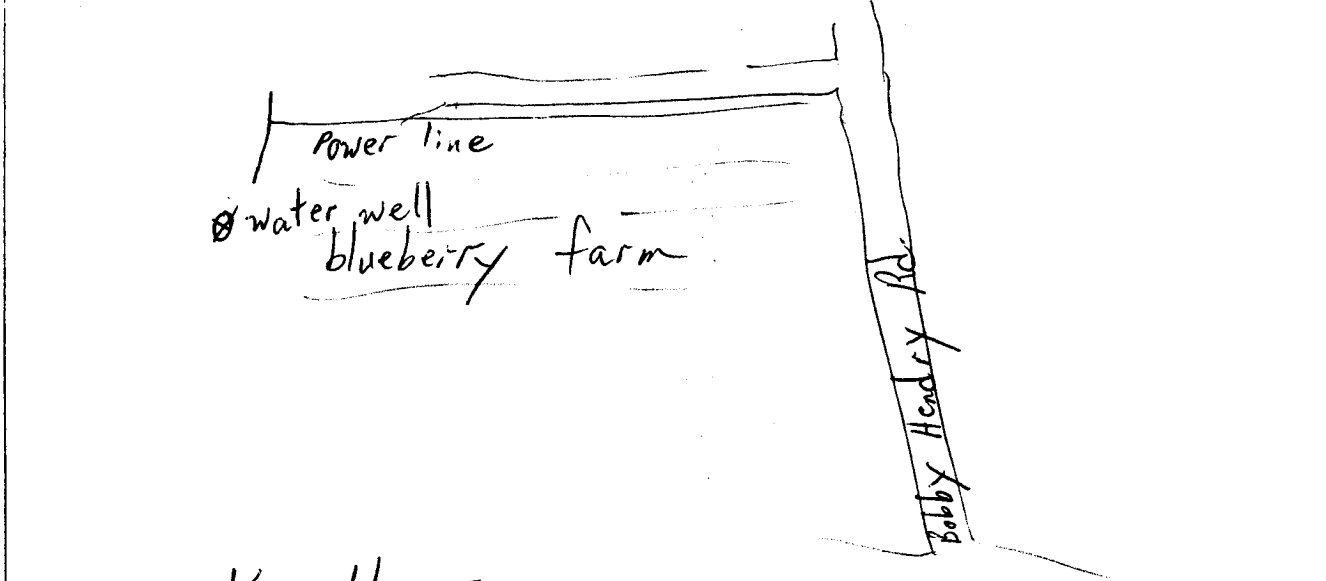 Power line
water well
blueberry farm
Bobby Hendry Rd.